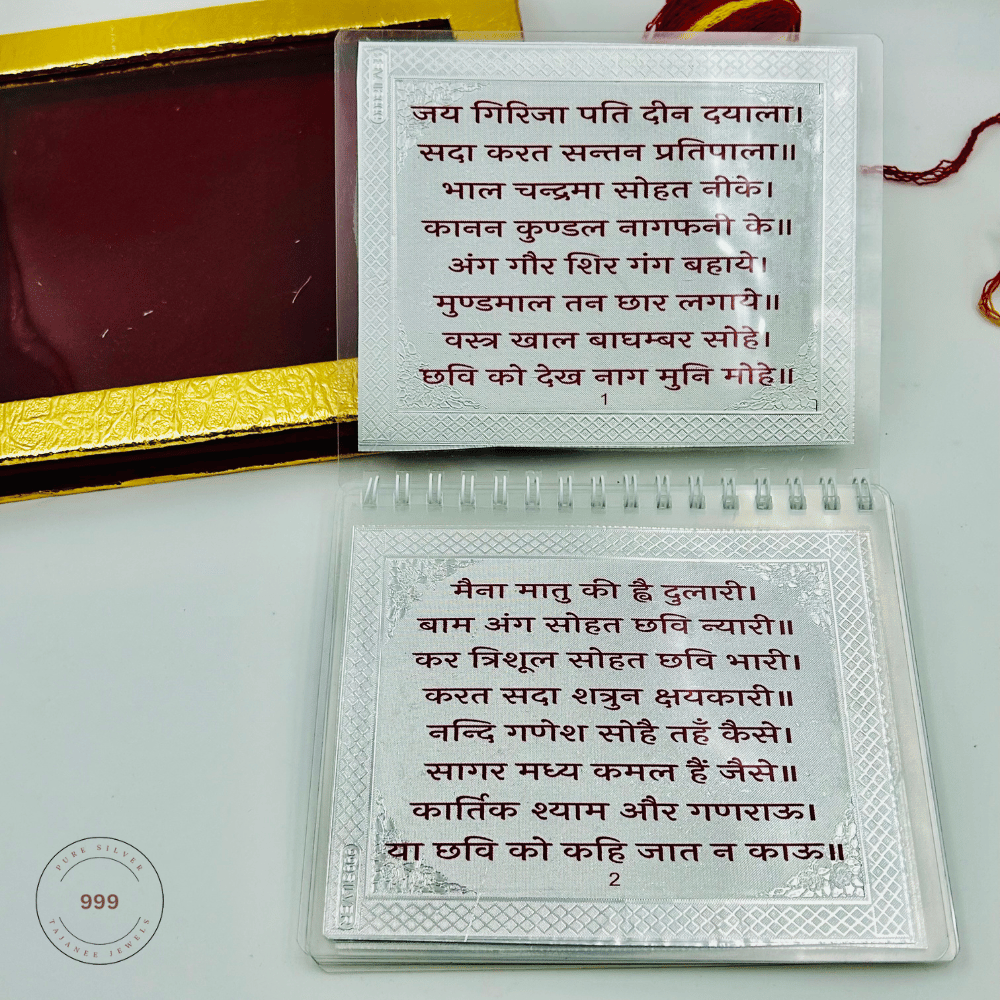 जय गिरिजा पति दीन दयाला।
सदा करत सन्तन प्रतिपाला॥
भाल चन्द्रमा सोहत नीके।
कानन कुण्डल नागफनी के॥
अंग गौर शिर गंग बहाये।
मुण्डमाल तन छार लगाये॥
वस्त्र खाल बाघम्बर सोहे।
छवि को देख नाग मुनि मोहे॥
1
मैना मातु की ह्वै दुलारी।
बाम अंग सोहत छवि न्यारी॥
कर त्रिशूल सोहत छवि भारी।
करत सदा शत्रुन क्षयकारी॥
नन्दि गणेश सोहै तहँ कैसे।
सागर मध्य कमल हैं जैसे॥
कार्तिक श्याम और गणराऊ।
या छवि को कहि जात न काऊ॥
2
PURE SILVER
999
TAJANEE JEWELS